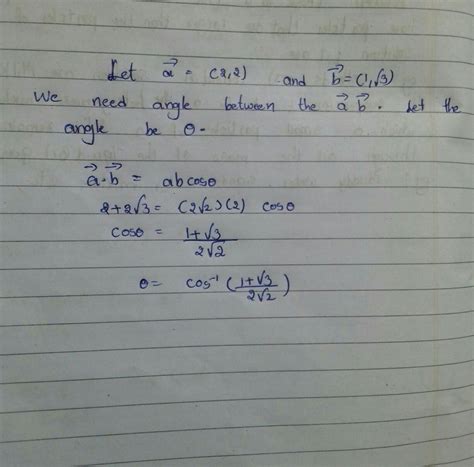 Let a⃗ = (2,2) and b⃗ = (1,√3)
We need angle between the a⃗ b⃗. Let the
angle be θ.
a⃗·b⃗ = ab cosθ
2+2√3 = (2√2)(2) cosθ
cosθ = (1+√3)/(2√2)
θ = cos⁻¹((1+√3)/(2√2))